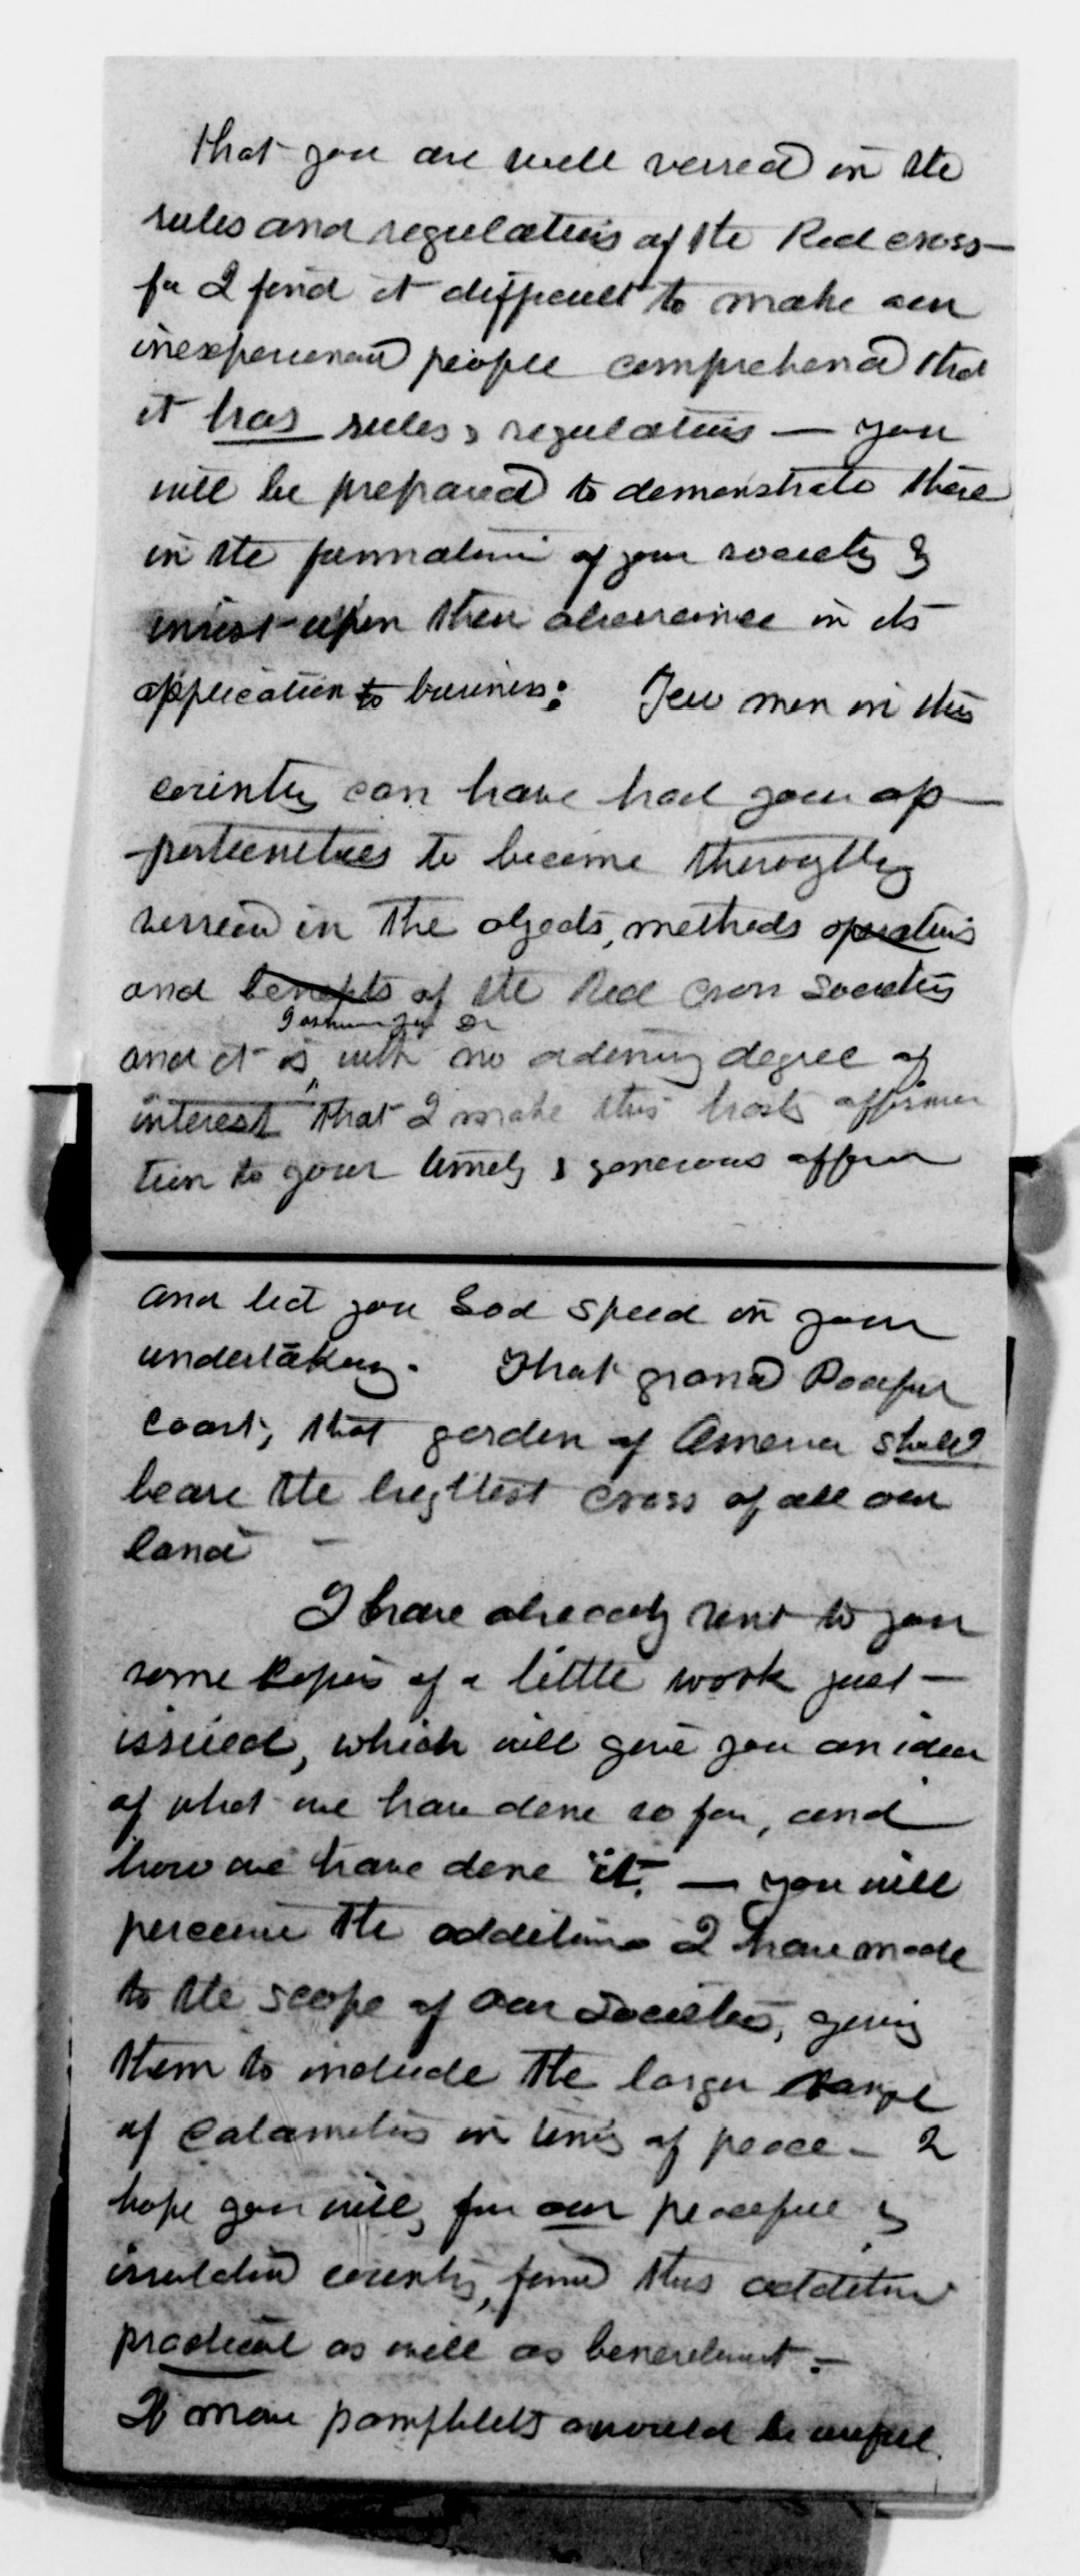 that you are well versed in the
rules and regulations of the Red cross—
for I find it difficult to make our
inexperienced people comprehend that
it has rules & regulations — you
will be prepared to demonstrate these
in the formation of your society &
insist upon their observance in its
application to business: Few men in this
country can have had your op-
-portunities to become thoroughly
versed in the objects, methods operations
and benefits of the Red Cross Societies
I assure you Sir
and it is with no ordinary degree of
interest that I make this hasty affirma
tion to your timely & generous offer
and bid you God speed in your
undertaking. That grand Pacific
coast, that garden of America shall
beare the brightest cross of all our
land —
I have already sent to you
some Copies of a little work just-
issued, which will give you an idea
of what we have done so far, and
how we have done it. — you will
perceive the additions I have made
to the scope of our Societies, giving
them to include the larger range
of calamities in times of peace — I
hope you will, for our peaceful &
insulated country, find this addition
practical as well as benevolent. —
If more pamphlets would be useful.